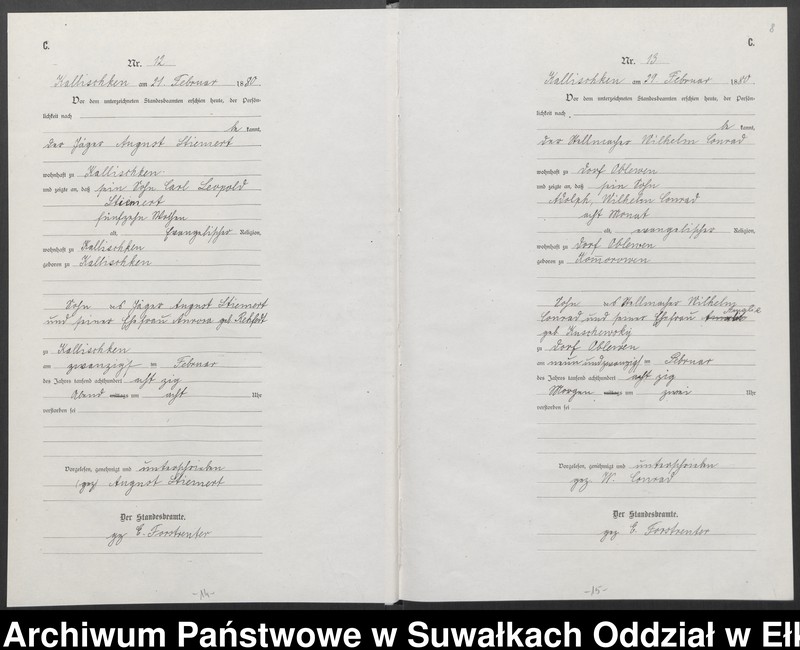 C.
Nr. 12
Kallischken am 21 Februar 1880
Vor dem unterzeichneten Standesbeamten erschien heute, der Persön-
lichkeit nach
be kannt,
der Jäger August Stiemert
wohnhaft zu Kallischken
und zeigte an, daß sein Sohn Carl Leopold
Stiemert
fünfzehn Wochen
alt, Evangelischer Religion,
wohnhaft zu Kallischken
geboren zu Kallischken
Sohn des Jäger August Stiemert
und seiner Ehefrau Aurora geb
zu Kallischken
am zwanzigst en Februar
des Jahres tausend achthundert acht zig
Abend mittags um acht Uhr
verstorben sei
Vorgelesen, genehmigt und unterschrieben
(gez August Stiemert
Der Standesbeamte.
gez E. Forstreuter
-14-
8
C.
Nr. 13
Kallischken am 29 Februar 1880
Vor dem unterzeichneten Standesbeamten erschien heute, der Persön-
lichkeit nach
be kannt,
der Stellmacher Wilhelm Conrad
wohnhaft zu Dorf Oblewen
und zeigte an, daß sein Sohn
Adolph, Wilhelm Conrad
acht Monat
alt, evangelischer Religion,
wohnhaft zu Dorf Oblewen
geboren zu Komorowen
Sohn des Stellmacher Wilhelm
Conrad und seiner Ehefrau
geb. Kuschewsky
zu Dorf Oblewen
am neun und zwanzigst en Februar
des Jahres tausend achthundert acht zig
Morgen mittags um zwei Uhr
verstorben sei
Vorgelesen, genehmigt und unterschrieben
gez W. Conrad
Der Standesbeamte.
gez E. Forstreuter
-15-
Archiwum Państwowe w Suwałkach Oddział w Ełk